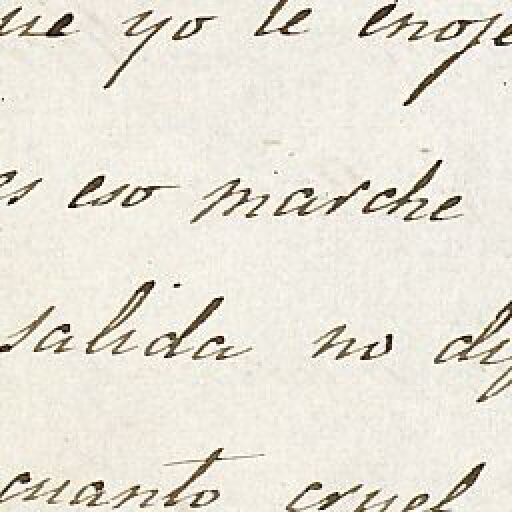 que yo te enoje
es eso marche
salida no dif
cuanto cruel